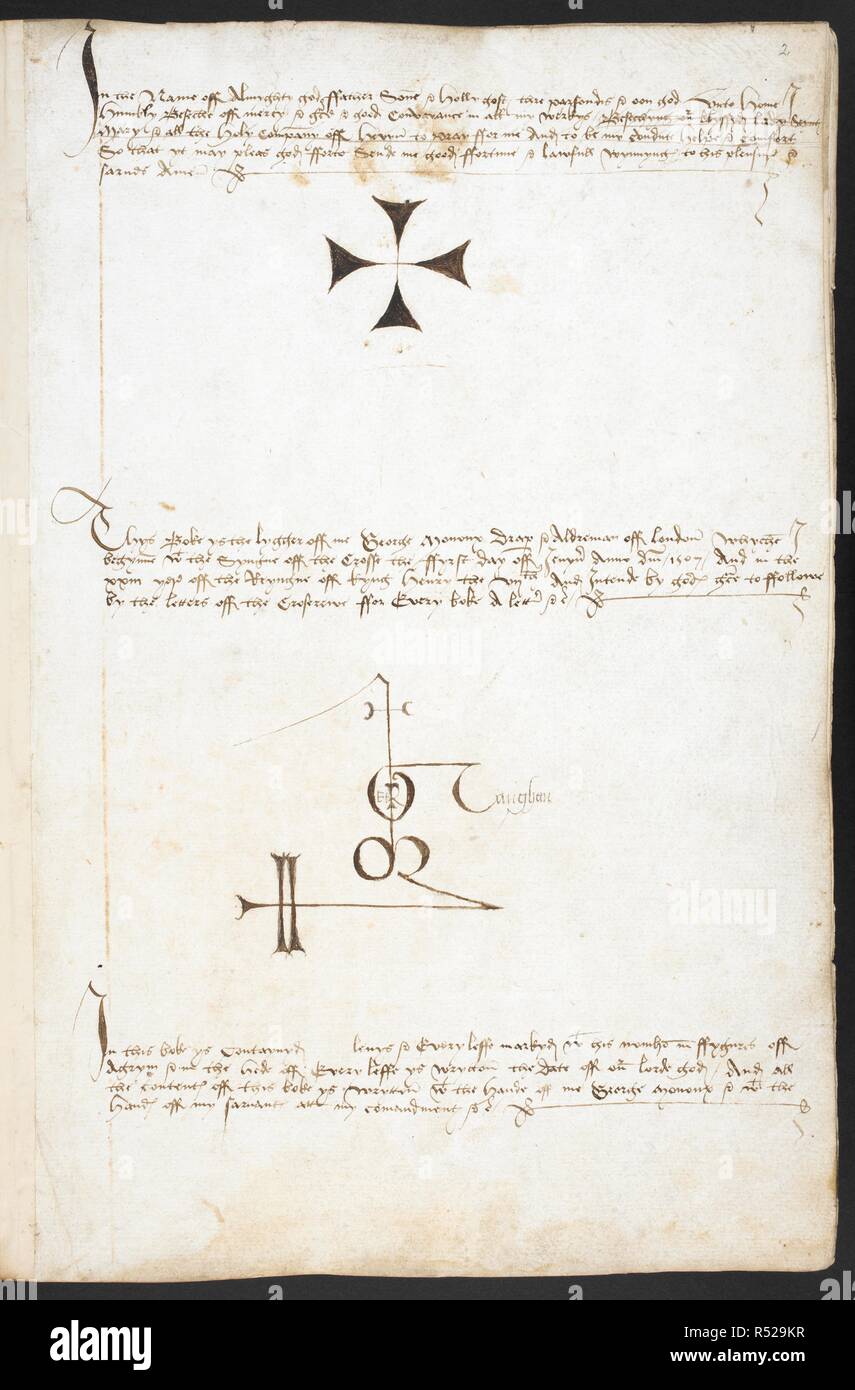 2
In the Name off Almyghti god ffather Sone & Holly gost thre parsondis & oon god Unto Home I
Humbly Beseche off mercy & gce & good Convayance in all my werkys / Besechyng our blessyd Lady Seint
Mary & all the Holy Company off hevyn to pray ffor me And to be my Conduit helpe & Comfort
So that yt may pleas god fforto Sende me good ffortune & lawfull wynnyng to his plesur &
sarues Ame
Thys Boke ys the lygger off me George Monoux Drap & Aldreman off london Whyche I
begynne wt the Syngne off the Crosse the ffyrst day off Jenyu Anno dm 1507 / And in the
yere off the Reyngne off kyng Henry the vijth And Intende by god gce to ffollowe
by the letters off the Croserewe ffor Every boke A lettr & c
Vaughan
In this boke ys Contaynyd levys & Every leffe markyd wt his nombor in ffygures off
Agrym & in the Hede off Every leffe ys wrytton the date off our lorde god / And all
the content off this boke ys wrytten wt the Hande off me George Monoux & wt the
Hand off my sarvante att my comandment & c
alamy
Image ID: R529KR
www.alamy.com